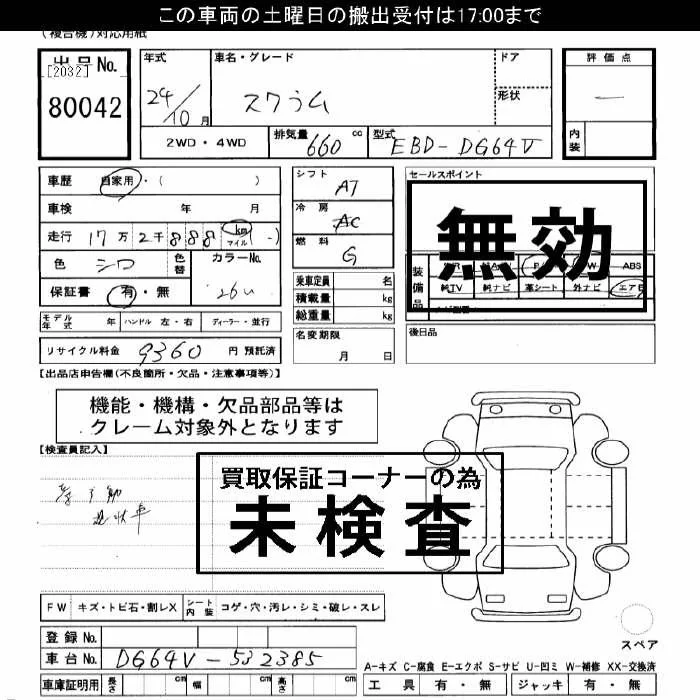 この車両の土曜日の搬出受付は17:00まで
(複合機)対応用紙
出品No. [2032] 80042
年式 24/10月
車名・グレード スクラム
ドア
形状
評価点 —
内装
2WD・4WD
排気量 660 cc
型式 EBD-DG64V
車歴 自家用・( )
車検 年 月
走行 17万2千888 km マイル (-)
色 シロ 色替
カラーNo. 26U
保証書 有・無
シフト AT
冷房 AC
燃料 G
乗車定員 名
積載量 kg
総重量 kg
名変期限 月 日
セールスポイント
無効
装備品 ABS
純TV 純ナビ 革シート 外ナビ エアB
後日品
モデル年式 年 ハンドル 左・右 ディーラー・並行
リサイクル料金 9360 円 預託済
【出品店申告欄(不良箇所・欠品・注意事項等)】
機能・機構・欠品部品等は
クレーム対象外となります
【検査員記入】
買取保証コーナーの為
未検査
FW キズ・トビ石・割レX シート内装 コゲ・穴・汚レ・シミ・破レ・スレ
登録No.
車台No. DG64V-532385
車庫証明用 長さ cm 幅 cm 高さ cm
スペア
A-キズ C-腐食 E-エクボ S-サビ U-凹ミ W-補修 XX-交換済
工具 有・無 ジャッキ 有・無